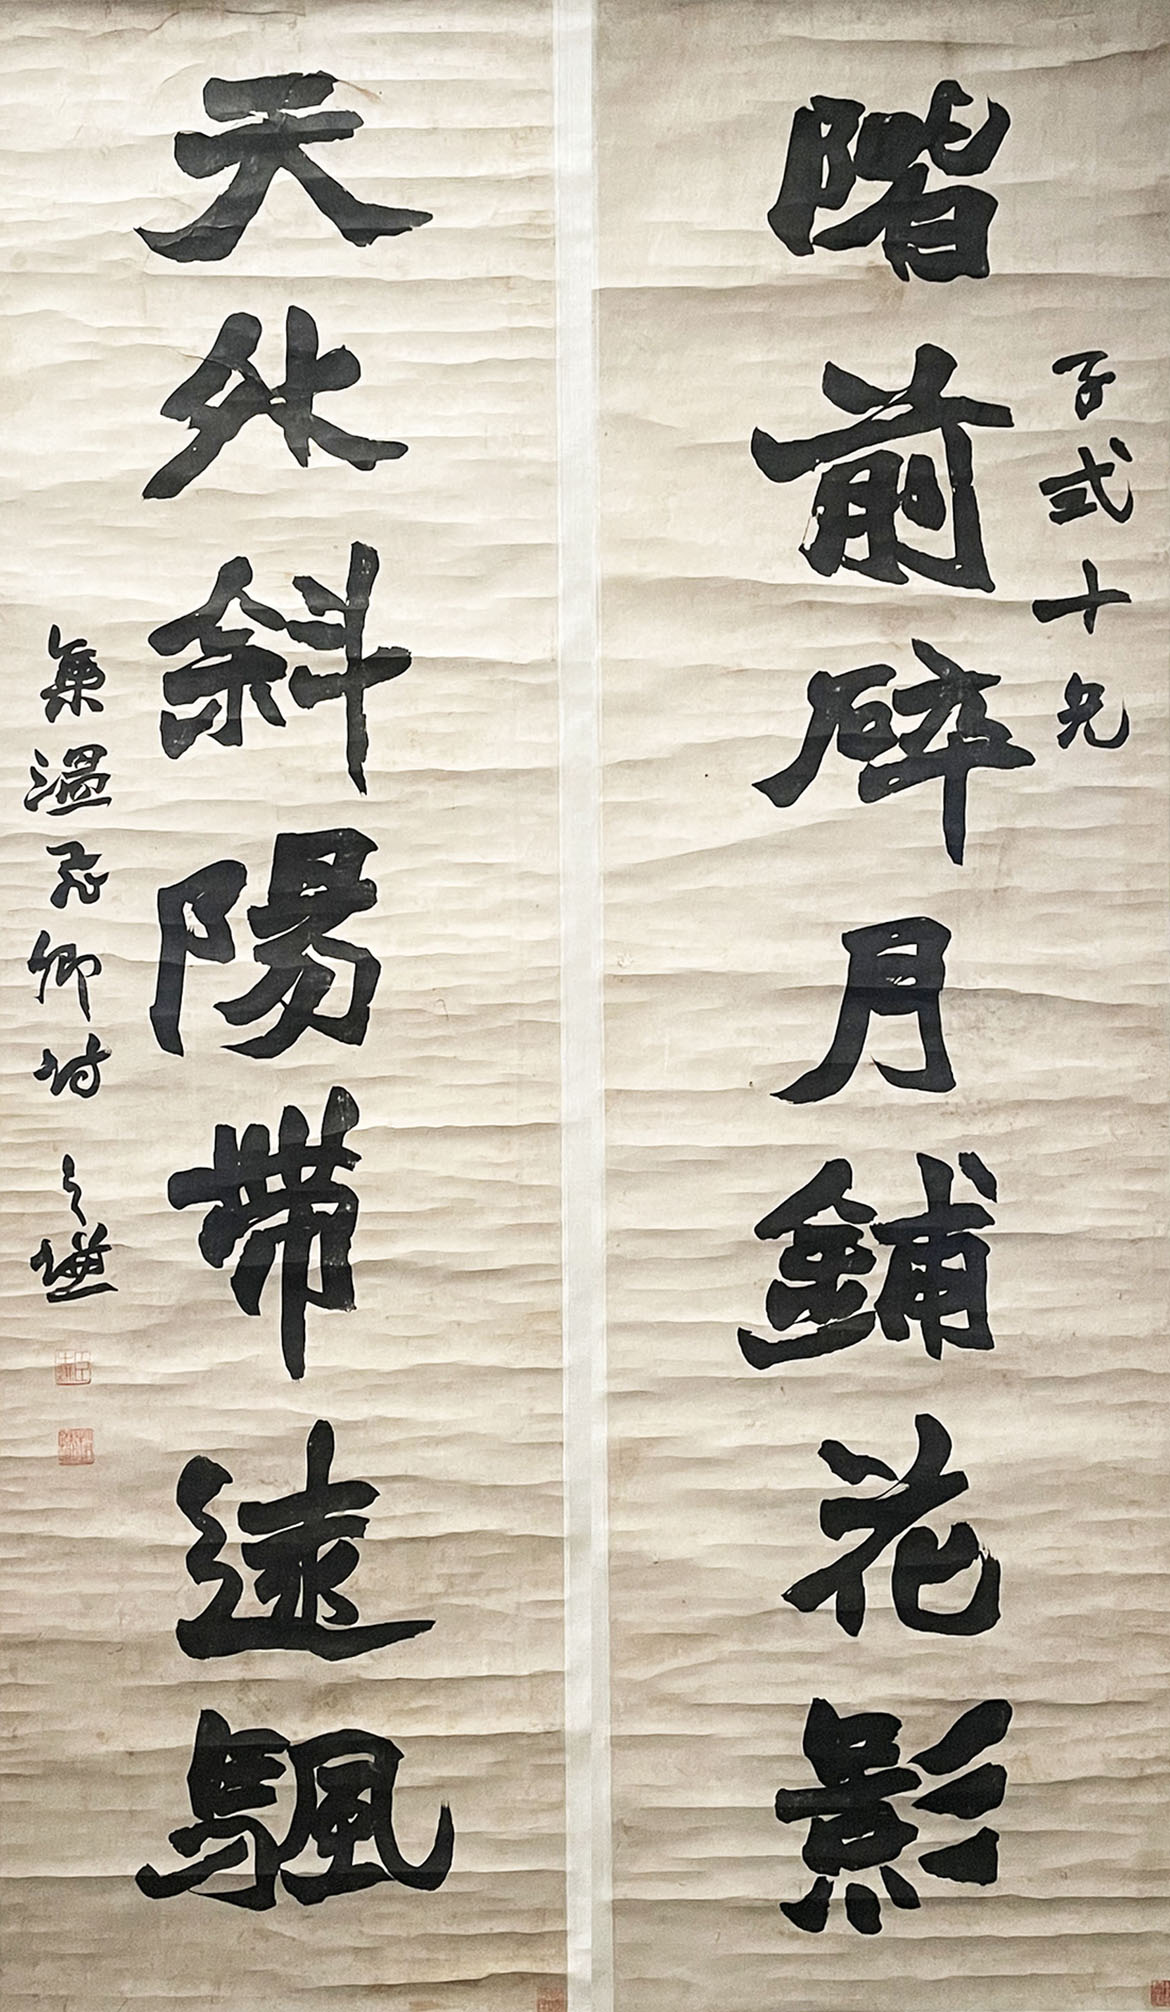 子式十兄
階前碎月鋪花影
天外斜陽帶遠颿
集溫飛卿詩 之謙